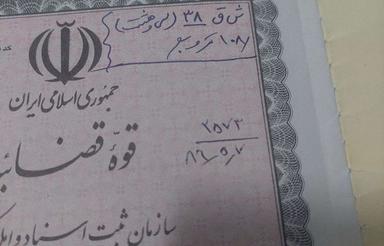 ش ق ۳۸ (سی و هشت)
۱۰۸/
جمهوری اسلامی ایران
قوّهٔ قضائیه
۲۵۷۳
۸۶/۵/۷
سازمان ثبت اسناد و املاک